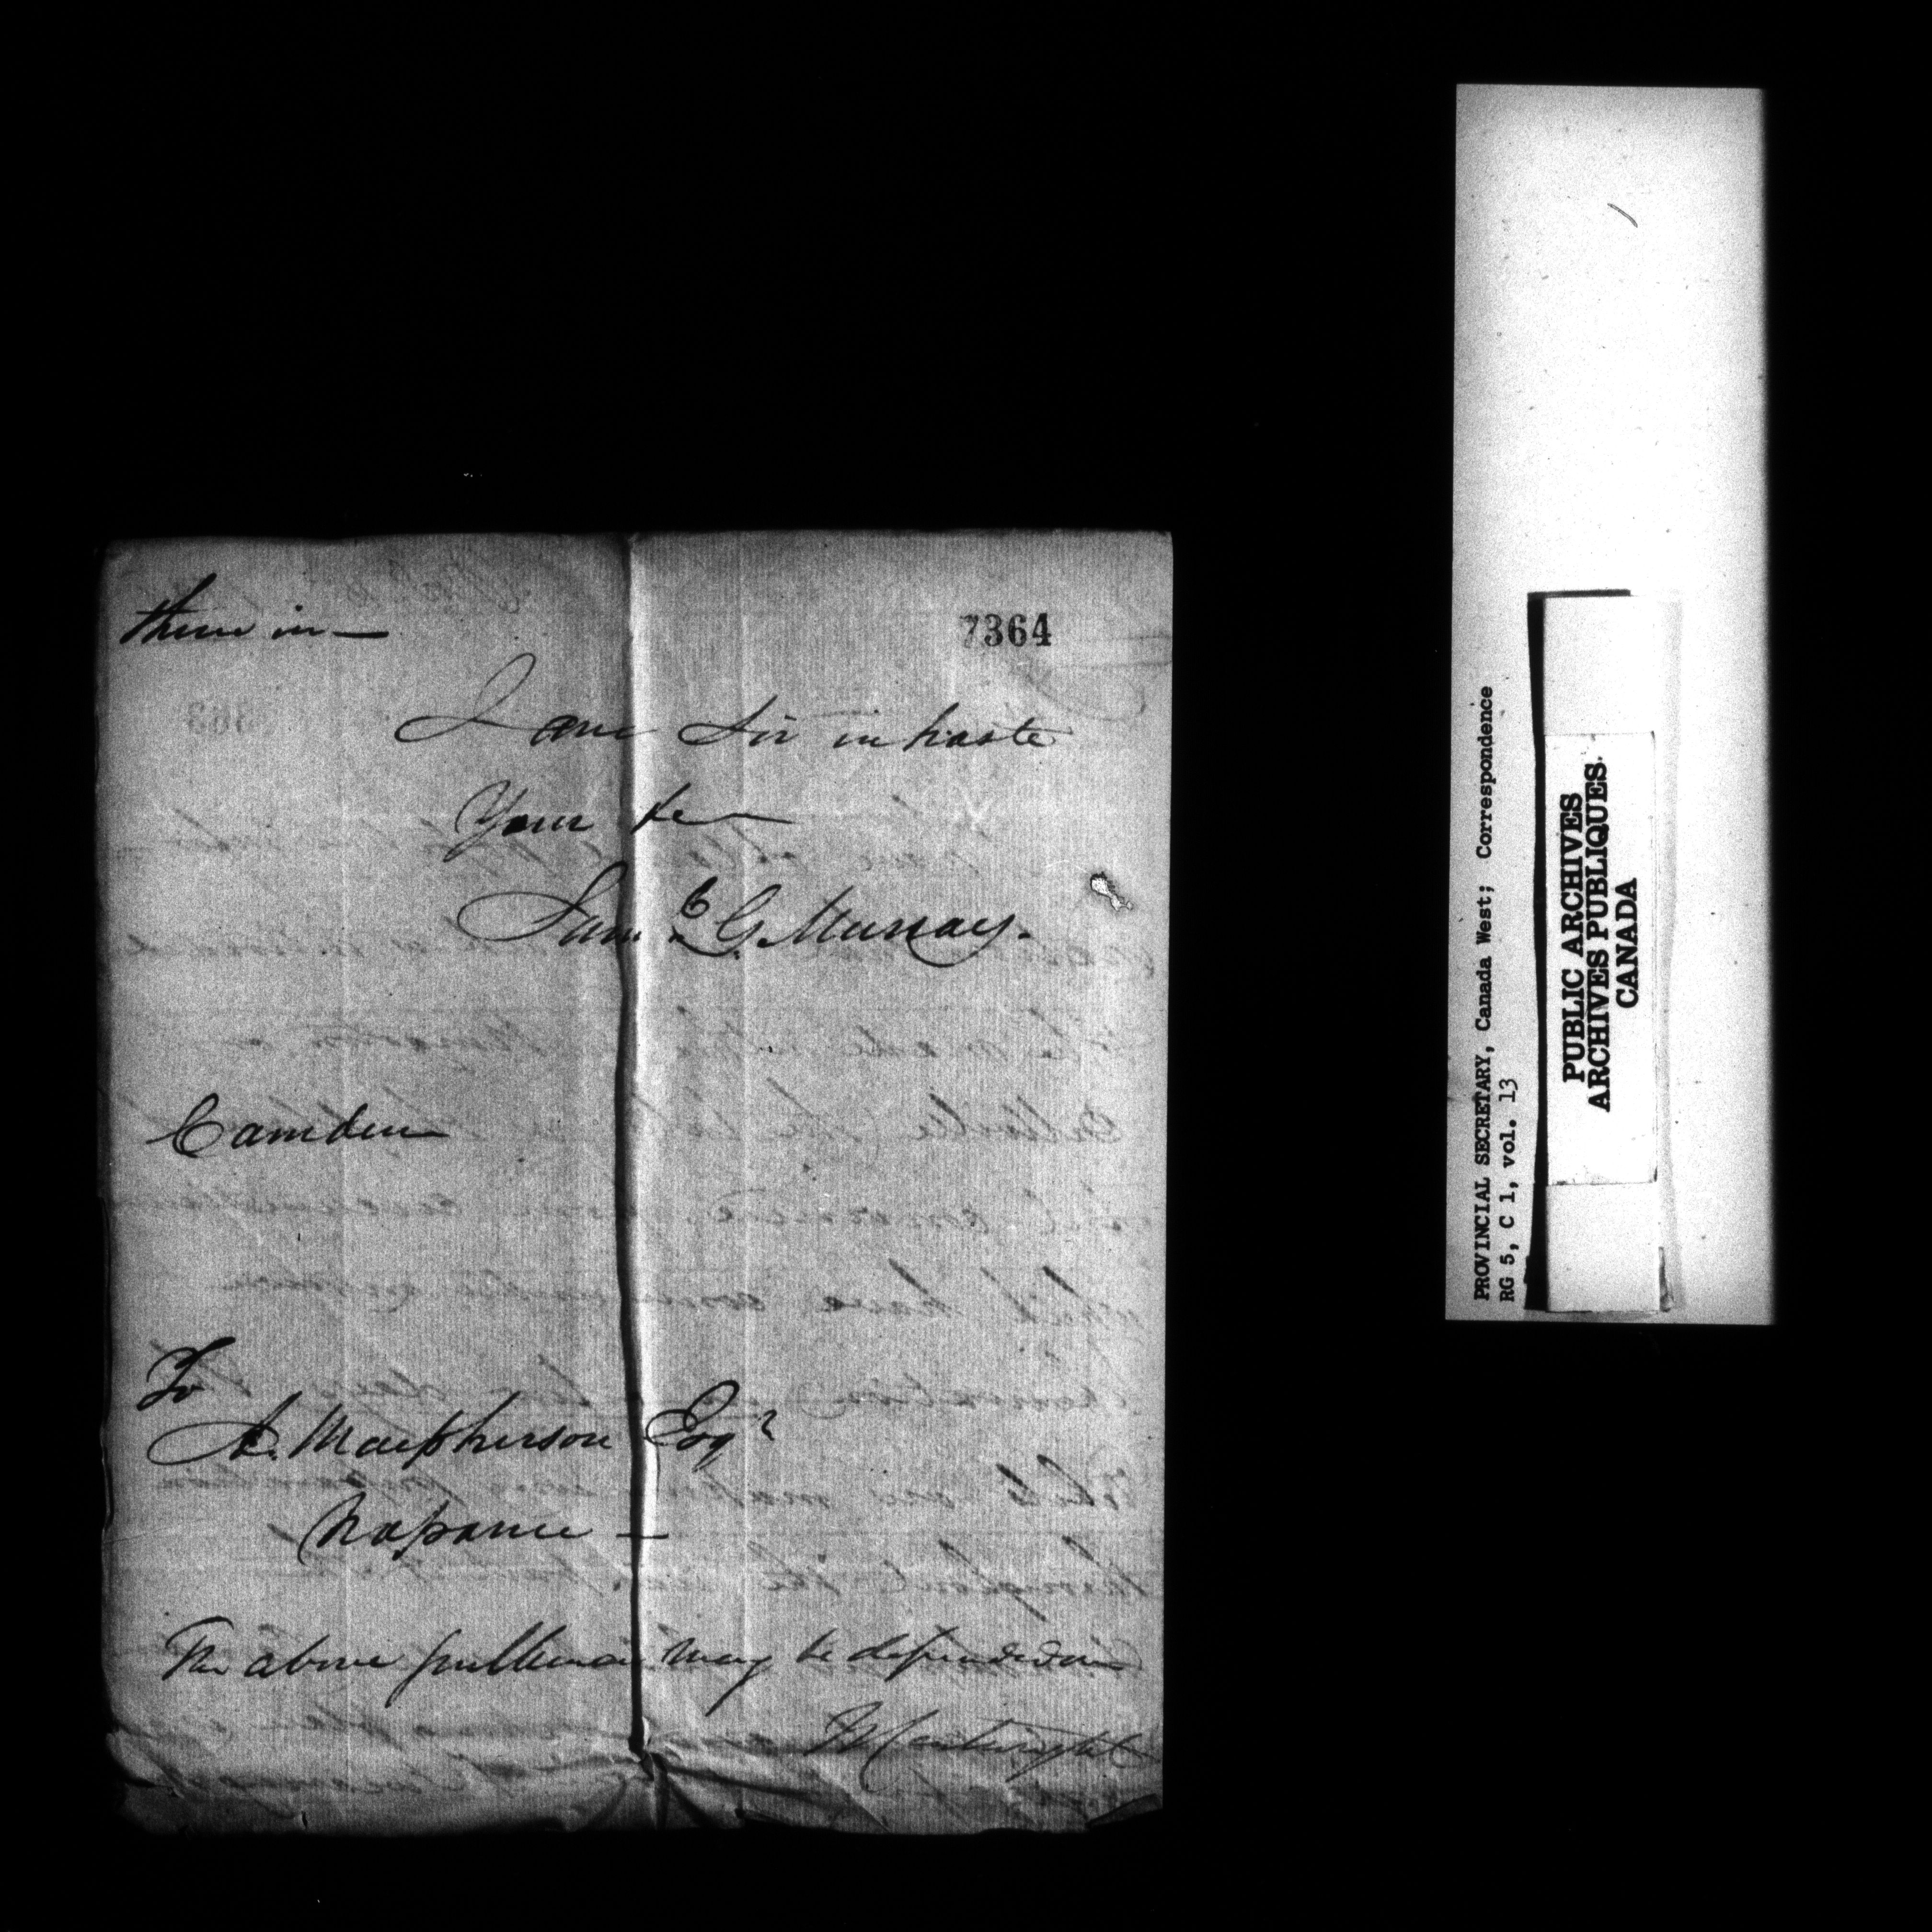 7364
them in —
I am Sir in haste
Your &c —
Saml. G. Murray.
Camden
To
A. Macpherson Esqr
Napanee —
The above gentleman may be depended on
J S Cartwright
PROVINCIAL SECRETARY, Canada West; Correspondence
RG 5, C 1, vol. 13
PUBLIC ARCHIVES
ARCHIVES PUBLIQUES
CANADA